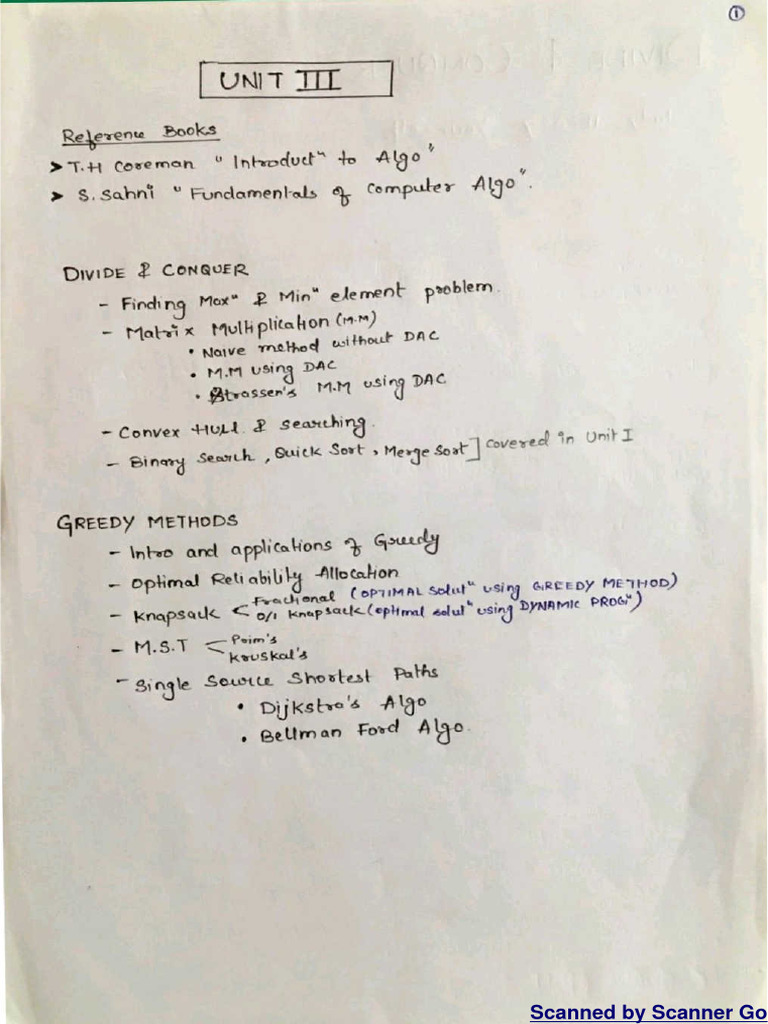 ①
UNIT III
Reference Books
➤ T.H Coreman " Introductⁿ to Algo"
➤ S. Sahni " Fundamentals of Computer Algo".
DIVIDE & CONQUER
- Finding Maxᵐ & Minᵐ element problem.
- Matrix Multiplication (M.M)
• Naive method without DAC
• M.M using DAC
• Strassen's M.M using DAC
- Convex HULL & searching.
- Binary Search, Quick Sort, Merge Sort] covered in Unit I
GREEDY METHODS
- Intro and applications of Greedy
- Optimal Reliability Allocation
- Knapsack < Fractional (OPTIMAL Solutⁿ using GREEDY METHOD)
0/1 Knapsack (optimal solutⁿ using DYNAMIC PROGⁿ)
- M.S.T < Prim's
Kruskal's
- Single Source Shortest Paths
• Dijkstra's Algo
• Bellman Ford Algo.
Scanned by Scanner Go